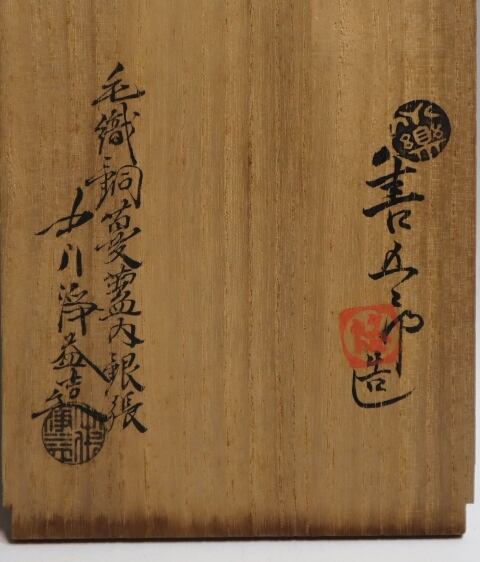 善五郎造
毛織銅蔓蓋内銀張
中川浄益造